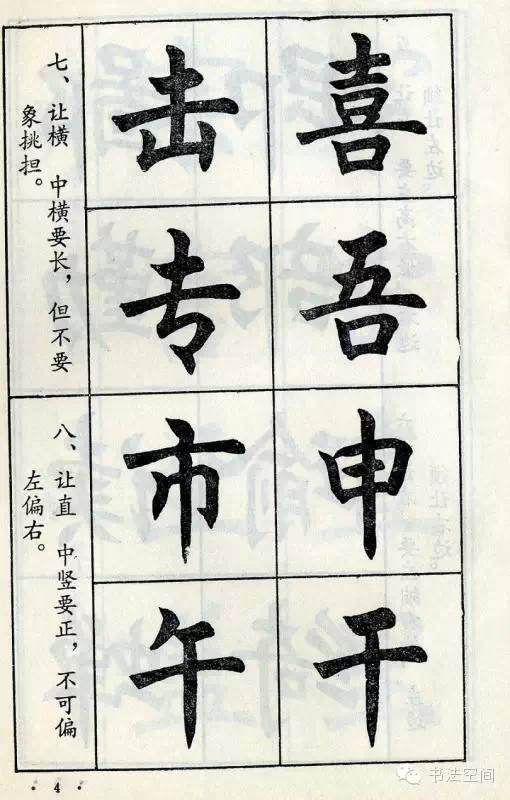 喜吾
击专
七、让横 中横要长，但不要
象挑担。
申干
市午
八、让直 中竖要正，不可偏
左偏右。
·4·
书法空间